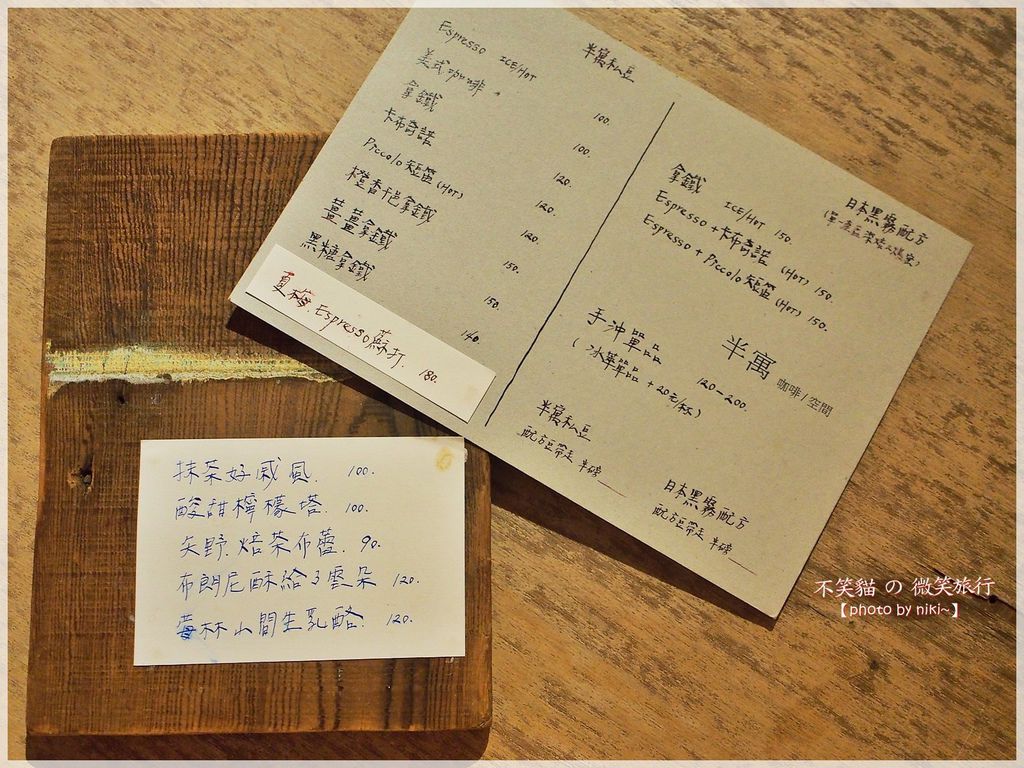 Espresso ICE/HOT 半寓私豆
美式咖啡 100.
拿鐵 100.
卡布奇諾 120.
Piccolo 短笛 (HOT) 120.
橙香卡邑拿鐵 120.
薑薑拿鐵 150.
黑糖拿鐵 150.
140.
夏梅.Espresso蘇打. 180.
日本黑霧配方
拿鐵 ICE/HOT 150.
Espresso + 卡布奇諾 (HOT) 150.
Espresso + Piccolo 短笛 (HOT) 150.
手沖單品 120-200.
(冰華單品 + 20元/杯)
半寓 咖啡/空間
半寓私豆
配方豆帶走 半磅
日本黑霧配方
配方豆帶走 半磅
抹茶好戚風. 100.
酸甜檸檬塔. 100.
矢野.焙茶布蕾. 90.
布朗尼酥給3雲朵 120.
莓林山間生乳酪. 120.
不笑貓 の 微笑旅行
【photo by niki~】